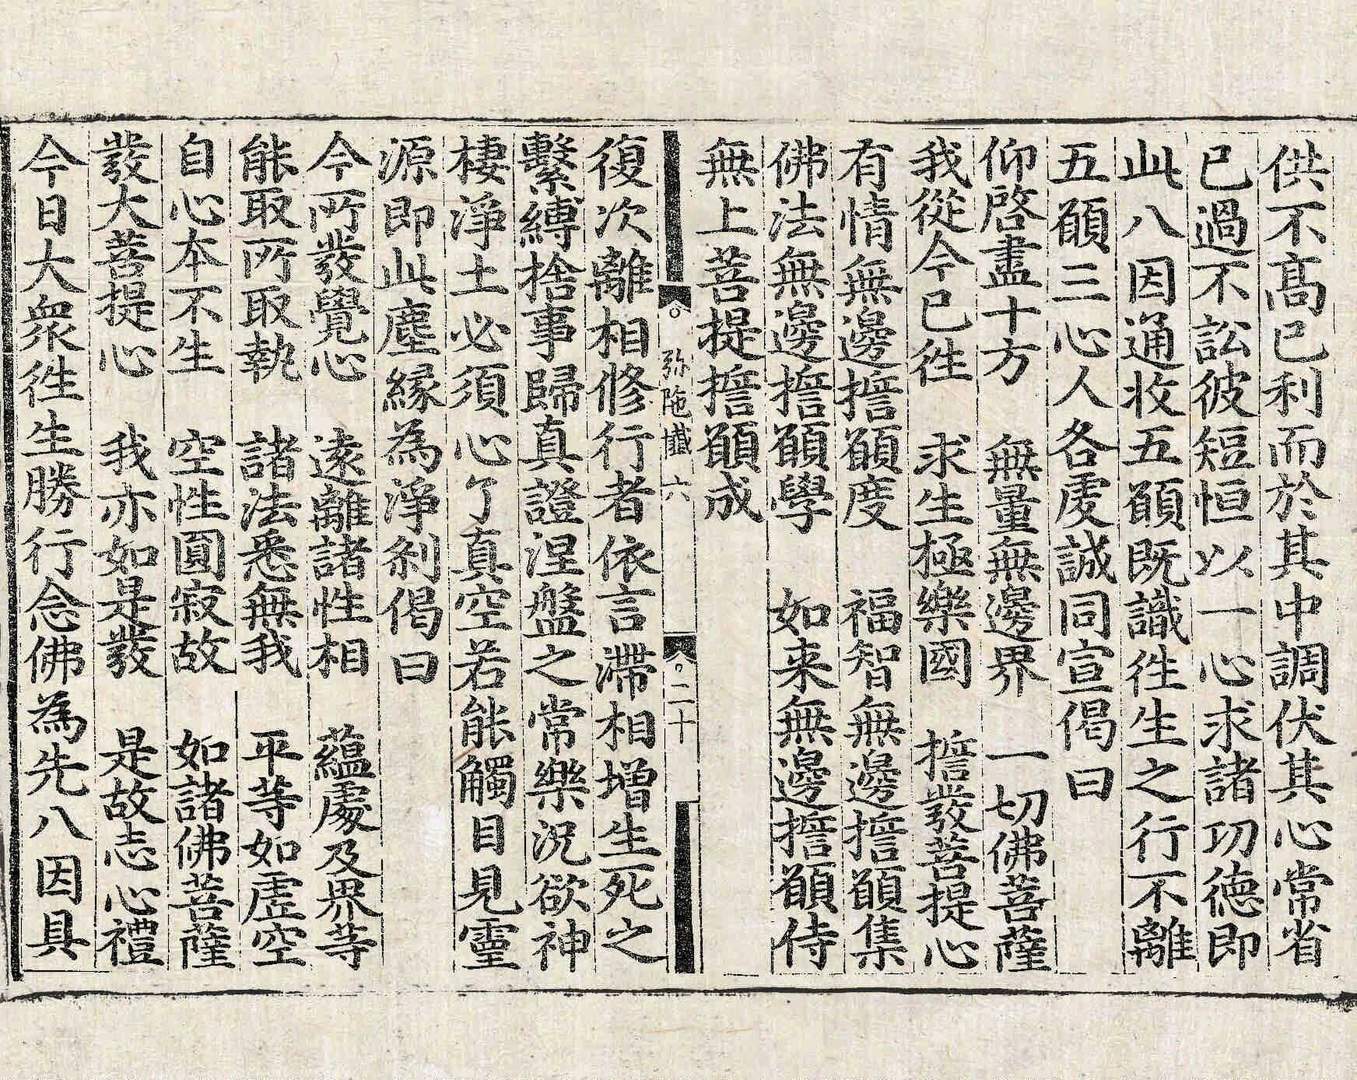 供不髙已利而於其中調伏其心常省
已過不訟彼短恒以一心求諸功德即
此八因通收五願既識徃生之行不離
五願三心人各䖍誠同宣偈曰
仰啓盡十方　無量無邊界　一切佛菩薩
我從今已徃　求生極樂國　誓發菩提心
有情無邊誓願度　福智無邊誓願集
佛法無邊誓願學　如来無邊誓願侍
無上菩提誓願成
弥陁懴　六　二十
復次離相修行者依言滯相增生死之
繫縛捨事歸真證涅盤之常樂況欲神
棲淨土必須心了真空若能觸目見靈
源即此塵緣為淨刹偈曰
今所發覺心　遠離諸性相　蘊處及界等
能取所取執　諸法悉無我　平等如虛空
自心本不生　空性圓寂故　如諸佛菩薩
發大菩提心　我亦如是發　是故志心禮
今日大衆徃生勝行念佛為先八因具